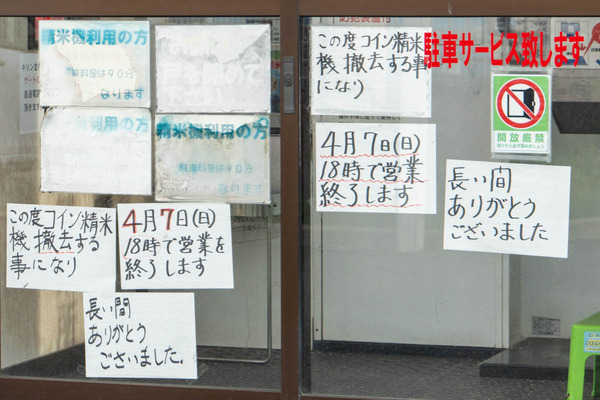 精米機利用の方
駐車料金は90分
なります
利用の方
精米機利用の方
駐車料金は90分
なります
この度コイン精米
機撤去する
事になり
4月7日(日)
18時で営業を
終了します
長い間
ありがとう
ございました。
この度コイン精米
機撤去する事
になり
4月7日(日)
18時で営業
終了します
長い間
ありがとう
ございました
駐車サービス致します
開放厳禁